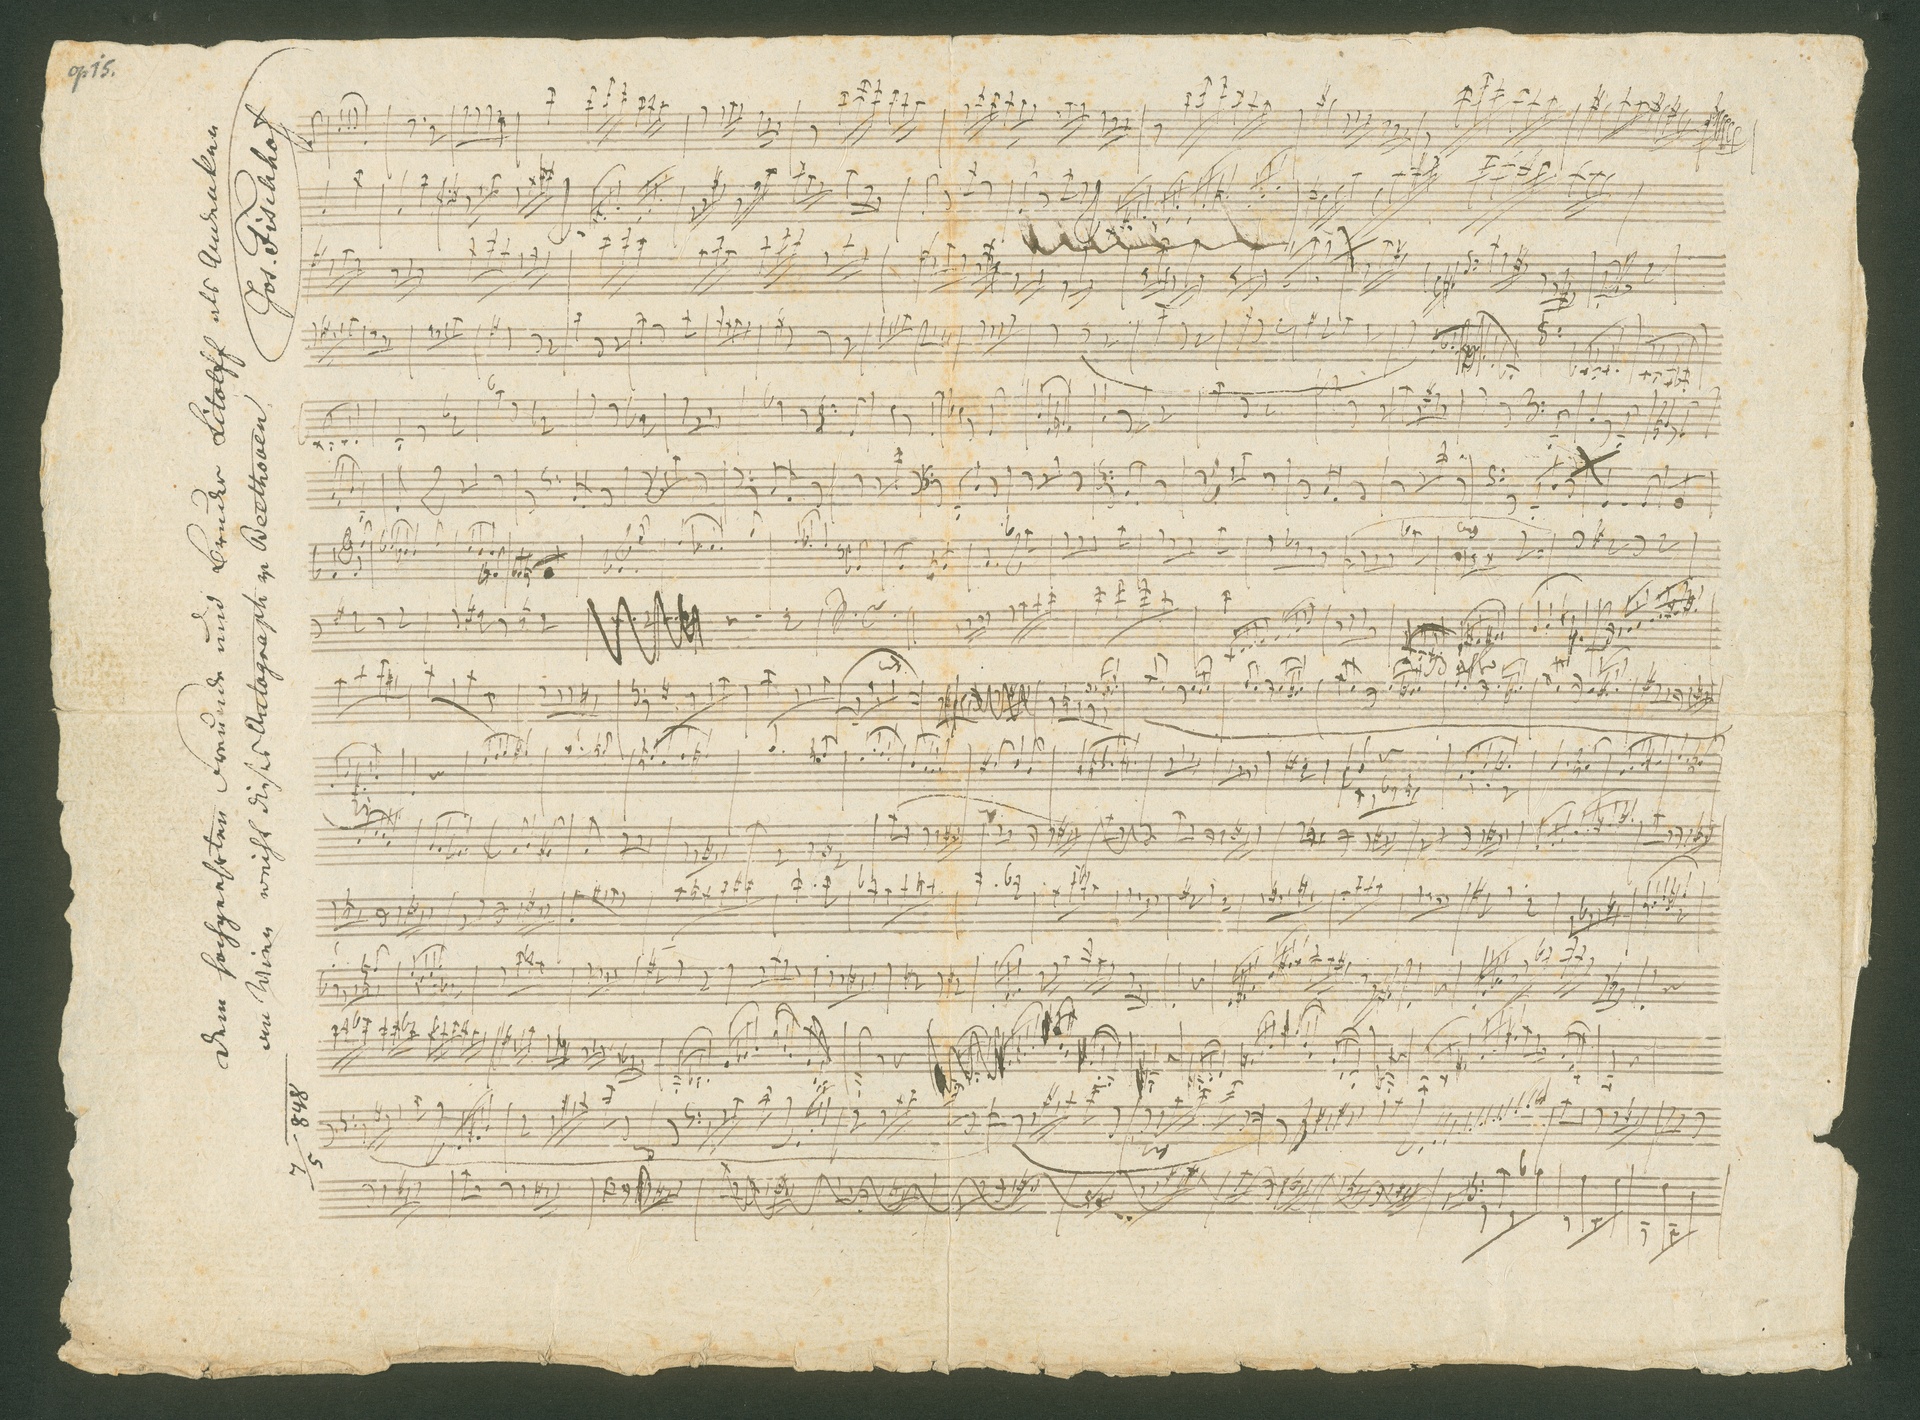 op 15.
Dem hochgeehrten Freunde und Bruder Litolff als Andenken
an Wien weiht dieses Autograph v. Beethoven
Jos. Fischhof
7/5 848